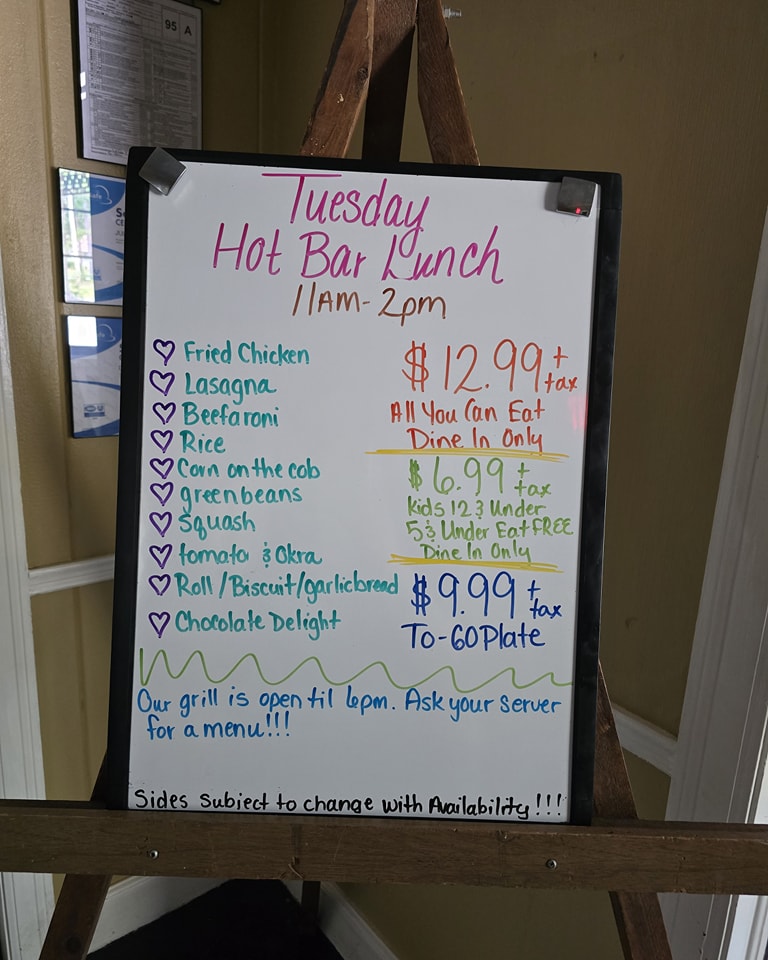 95 A
Tuesday
Hot Bar Lunch
11AM-2pm
Fried Chicken
Lasagna
Beefaroni
Rice
Corn on the cob
greenbeans
Squash
tomato & Okra
Roll/Biscuit/garlicbread
Chocolate Delight
$12.99 + tax
All You Can Eat
Dine In Only
$6.99 + tax
kids 12 & Under
5 & Under Eat FREE
Dine In Only
$9.99 + tax
To-GO Plate
Our grill is open til 6pm. Ask your server
for a menu!!!
Sides Subject to change with Availability!!!